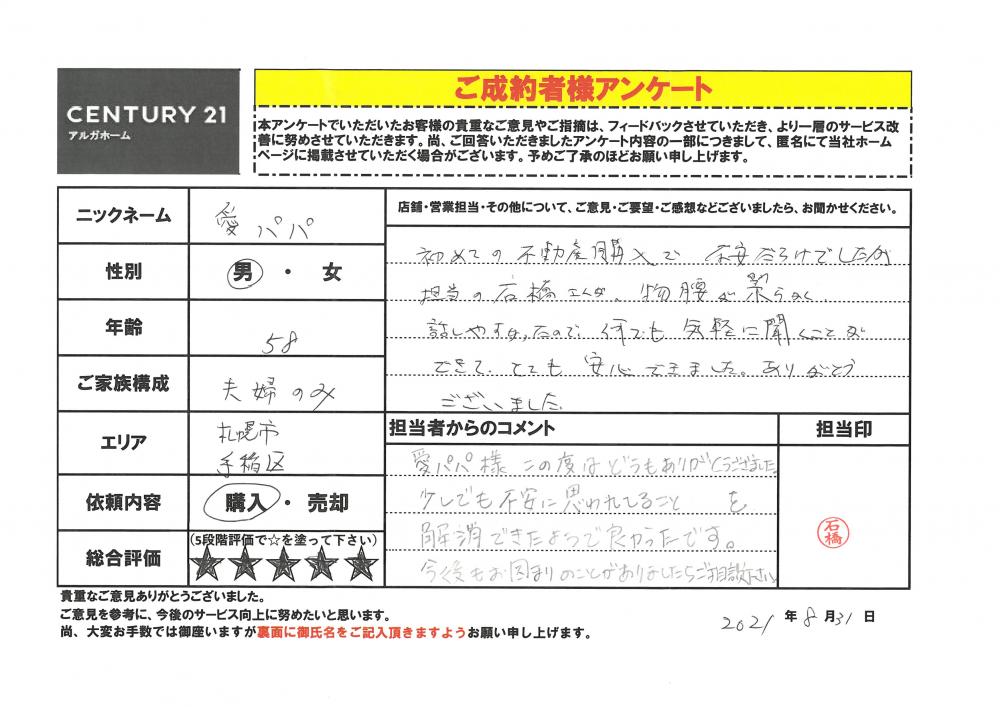 CENTURY 21
アルガホーム
ご成約者様アンケート
本アンケートでいただいたお客様の貴重なご意見やご指摘は、フィードバックさせていただき、より一層のサービス改
善に努めさせていただきます。尚、ご回答いただきましたアンケート内容の一部につきまして、匿名にて当社ホーム
ページに掲載させていただく場合がございます。予めご了承のほどお願い申し上げます。
ニックネーム
愛パパ
性別
男・女
年齢
58
ご家族構成
夫婦のみ
エリア
札幌市
手稲区
依頼内容
購入・売却
総合評価
(5段階評価で☆を塗って下さい)
★★★★★
店舗・営業担当・その他について、ご意見・ご要望・ご感想などございましたら、お聞かせください。
初めての不動産購入で不安だらけでしたが
担当の石橋さんが、物腰が柔らかく
話しやすかったので、何でも気軽に聞くことが
できて、とても安心できました。ありがとう
ございました
担当者からのコメント
愛パパ様 この度はどうもありがとうございました。
少しでも不安に思われてること を
解消できたようで良かったです。
今後もお困りのことがありましたらご相談下さい
担当印
石橋
貴重なご意見ありがとうございました。
ご意見を参考に、今後のサービス向上に努めたいと思います。
尚、大変お手数では御座いますが裏面に御氏名をご記入頂きますようお願い申し上げます。
2021年8月31日